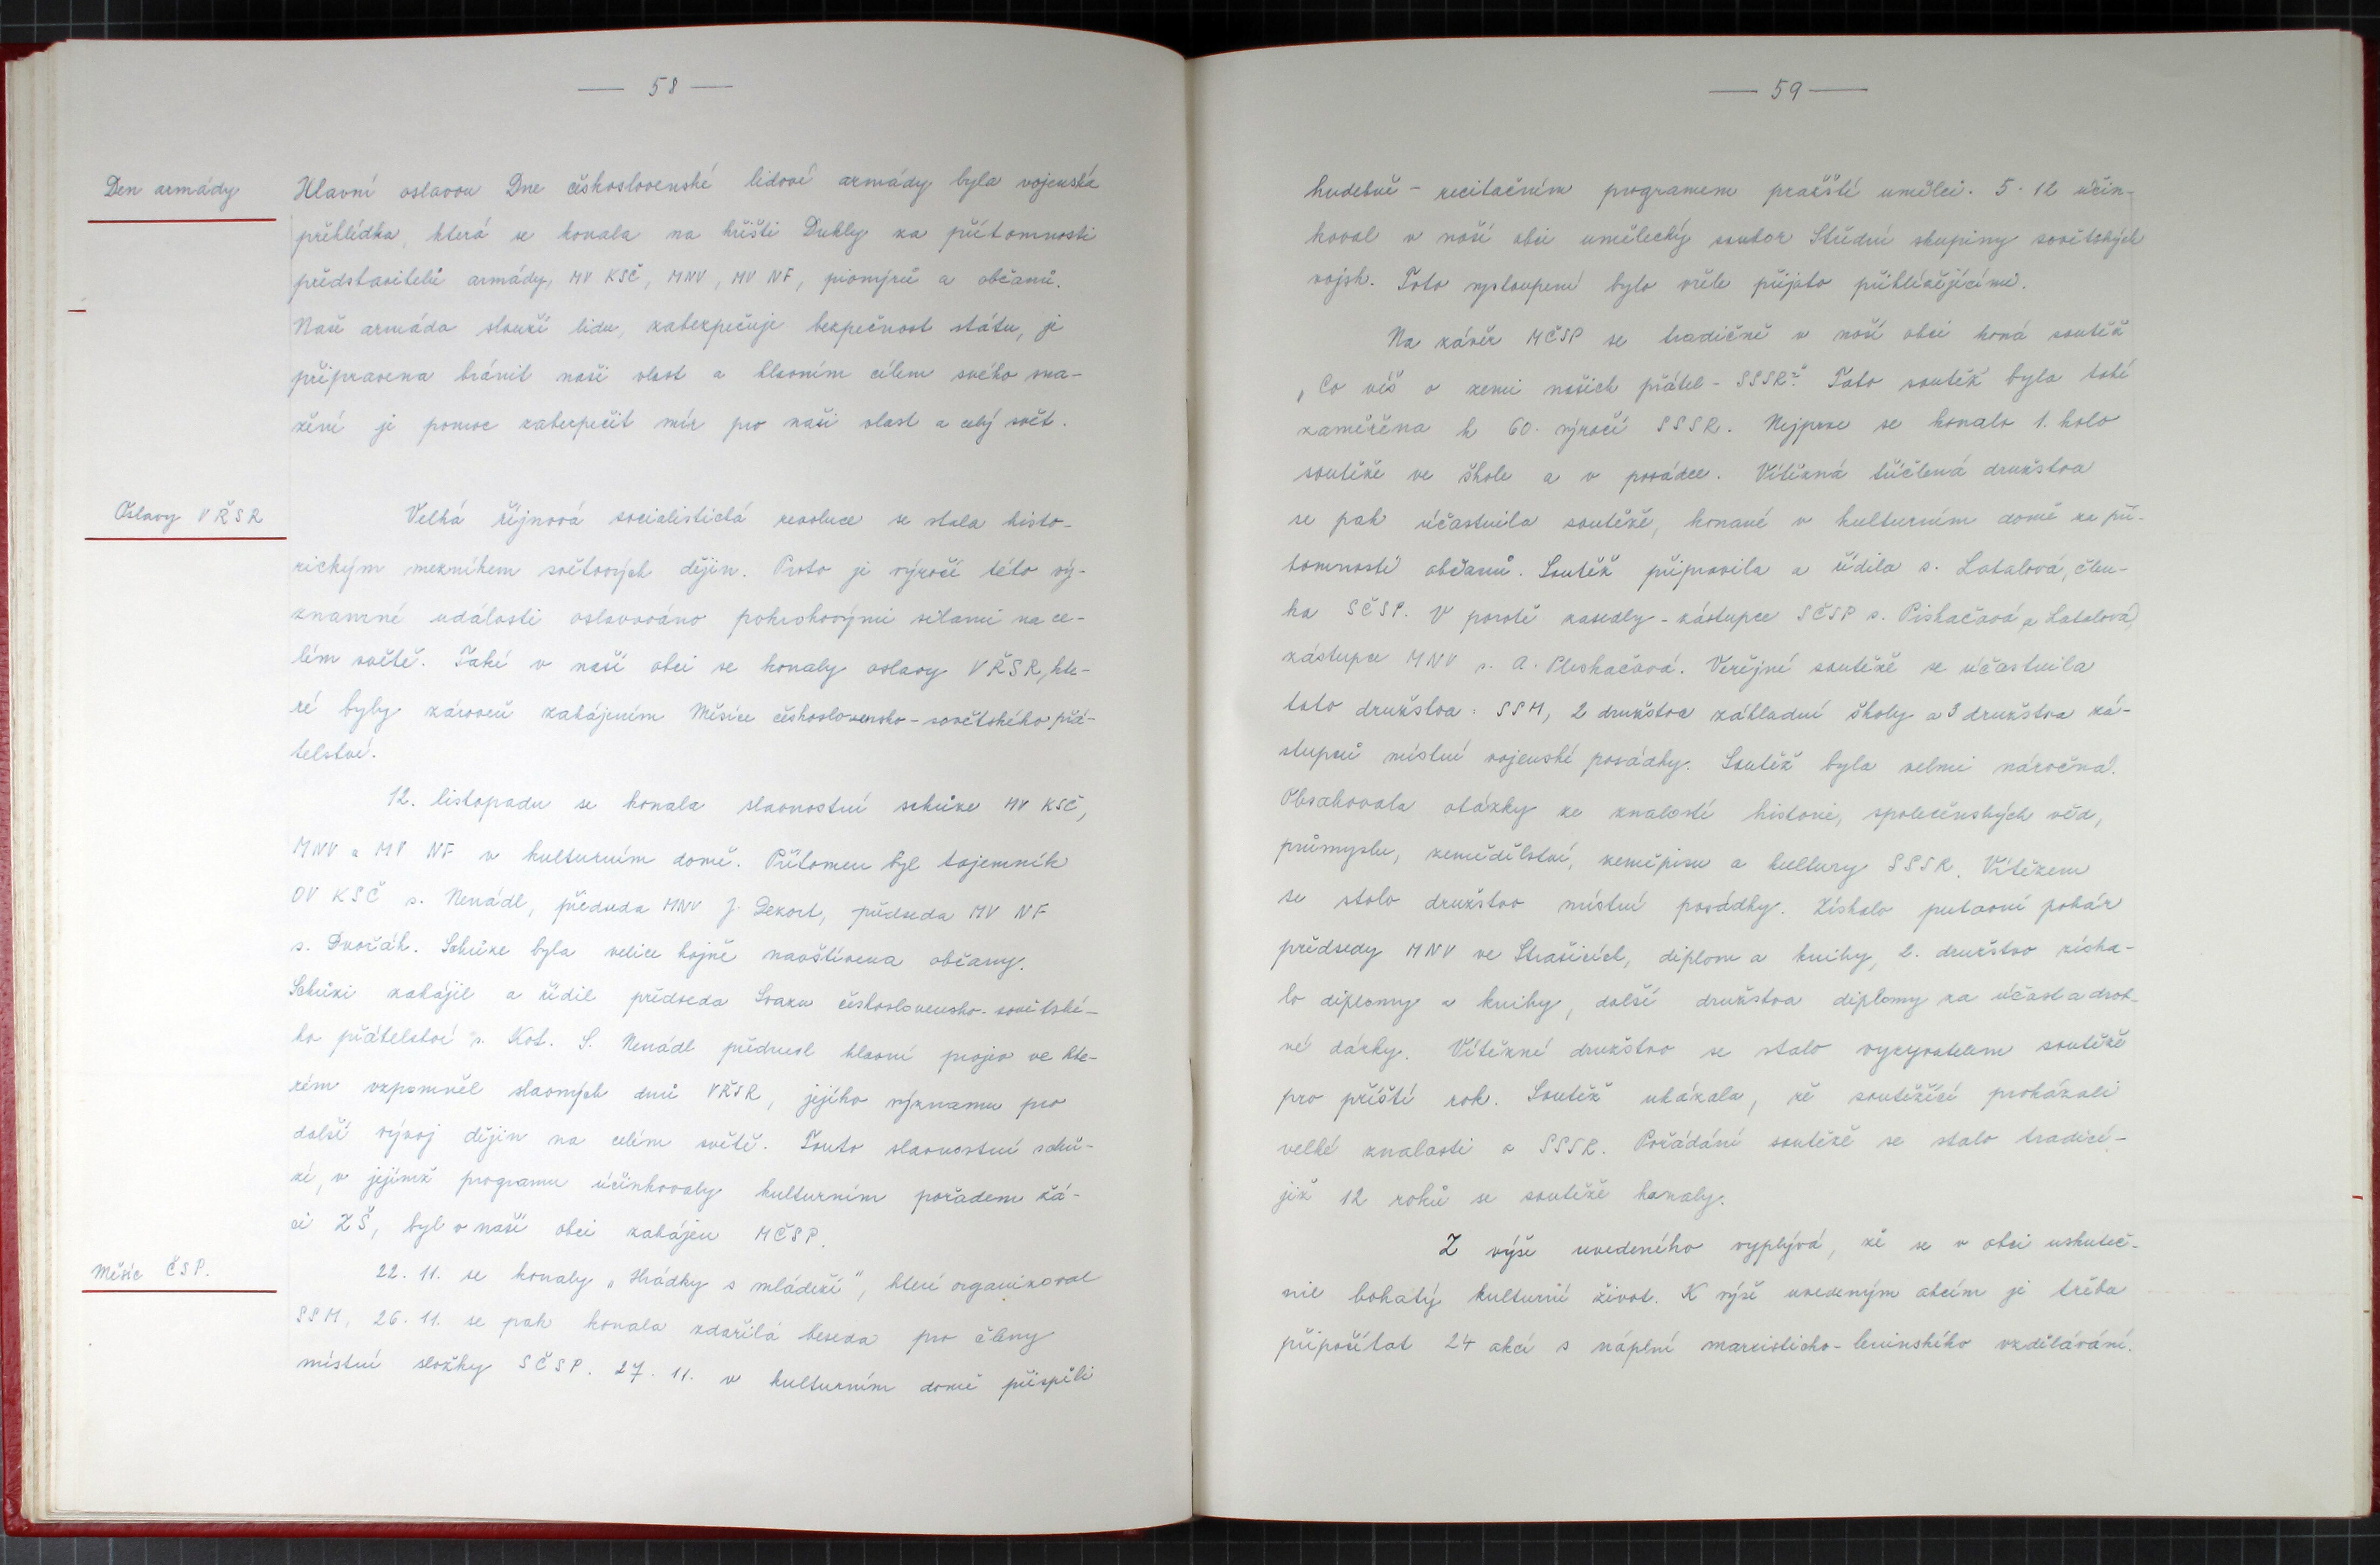 — 58 —
Den armády
Hlavní oslavou Dne československé lidové armády byla vojenská
přehlídka, která se konala na hřišti Dukly za přítomnosti
představitelů armády, MV KSČ, MNV, MV NF, pionýrů a občanů.
Naše armáda slouží lidu, zabezpečuje bezpečnost státu, je
připravena bránit naši vlast a hlavním cílem svého sna-
žení je pomoc zabezpečit mír pro naši vlast a celý svět.
Oslavy VŘSR
Velká říjnová socialistická revoluce se stala histo-
rickým mezníkem světových dějin. Proto je výročí této vý-
znamné události oslavováno pokrokovými silami na ce-
lém světě. Také v naší obci se konaly oslavy VŘSR, kte-
ré byly zároveň zahájením Měsíce československo-sovětského přá-
telství.
12. listopadu se konala slavnostní schůze MV KSČ,
MNV a MV NF v kulturním domě. Přítomen byl tajemník
OV KSČ s. Nenádl, předseda MNV J. Dezort, předseda MV NF
s. Dvořák. Schůze byla velice hojně navštívena občany.
Schůzi zahájil a řídil předseda Svazu československo-sovětské-
ho přátelství s. Kot. S. Nenádl přednesl hlavní projev ve kte-
rém vzpomněl slavných dnů VŘSR, jejího významu pro
další vývoj dějin na celém světě. Touto slavnostní schů-
zí, v jejímž programu účinkovaly kulturním pořadem žá-
ci ZŠ, byl v naší obci zahájen MČSP.
Měsíc ČSP.
22. 11. se konaly „Hrátky s mládeží", které organizoval
SSM, 26. 11. se pak konala zdařilá beseda pro členy
místní složky SČSP. 27. 11. v kulturním domě přispěli
— 59 —
hudebně - recitačním programem pražští umělci. 5. 12 účin-
koval v naší obci umělecký soubor Střední skupiny sovětských
vojsk. Toto vystoupení bylo vřele přijato přihlížejícími.
Na závěr MČSP se tradičně v naší obci koná soutěž
„Co víš o zemi našich přátel - SSSR?" Tato soutěž byla též
zaměřena k 60. výročí SSSR. Nejprve se konalo 1. kolo
soutěže ve škole a v posádce. Vítězná tříčlená družstva
se pak účastnila soutěže, konané v kulturním domě za pří-
tomnosti občanů. Soutěž připravila a řídila s. Latalová, člen-
ka SČSP. V porotě zasedly - zástupce SČSP s. Piskačová a Latalová,
zástupce MNV s. A. Pleskačová. Veřejné soutěže se účastnila
tato družstva: SSM, 2 družstva základní školy a 3 družstva zá-
stupců místní vojenské posádky. Soutěž byla velmi náročná.
Obsahovala otázky ze znalostí historie, společenských věd,
průmyslu, zemědělství, zeměpisu a kultury SSSR. Vítězem
se stalo družstvo místní posádky. Získalo putovní pohár
předsedy MNV ve Strašicích, diplom a knihy, 2. družstvo získa-
lo diplomy a knihy, další družstva diplomy za účast a drob-
né dárky. Vítězné družstvo se stalo vyzyvatelem soutěže
pro příští rok. Soutěž ukázala, že soutěžící prokázali
velké znalosti o SSSR. Pořádání soutěže se stalo tradicí -
již 12 roků se soutěže konaly.
Z výše uvedeného vyplývá, že se v obci uskuteč-
nil bohatý kulturní život. K výše uvedeným akcím je třeba
připočítat 24 akcí s náplní marxisticko-leninského vzdělávání.